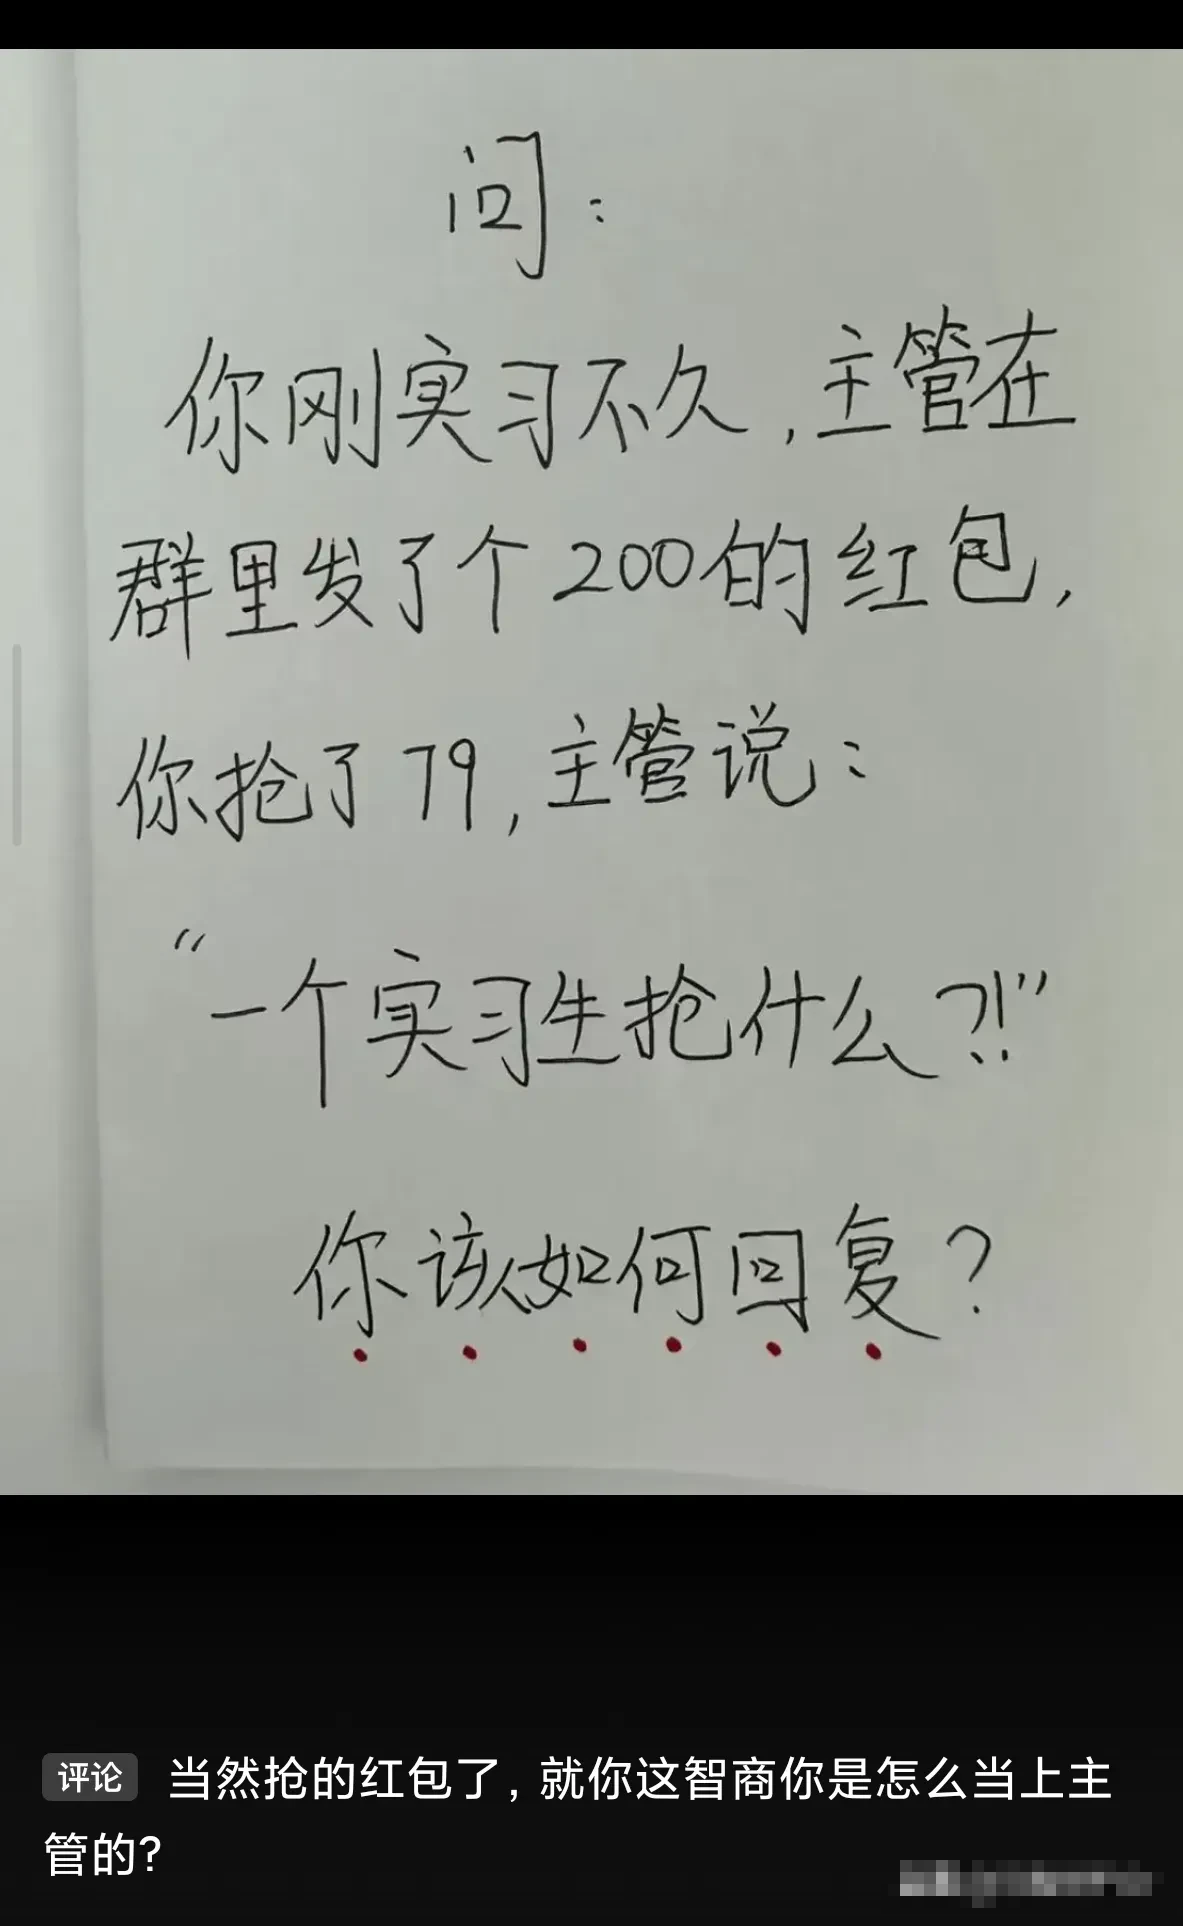 问：
你刚实习不久，主管在
群里发了个200的红包，
你抢了79，主管说：
“一个实习生抢什么？！”
你该如何回复？
评论 当然抢的红包了，就你这智商你是怎么当上主
管的？